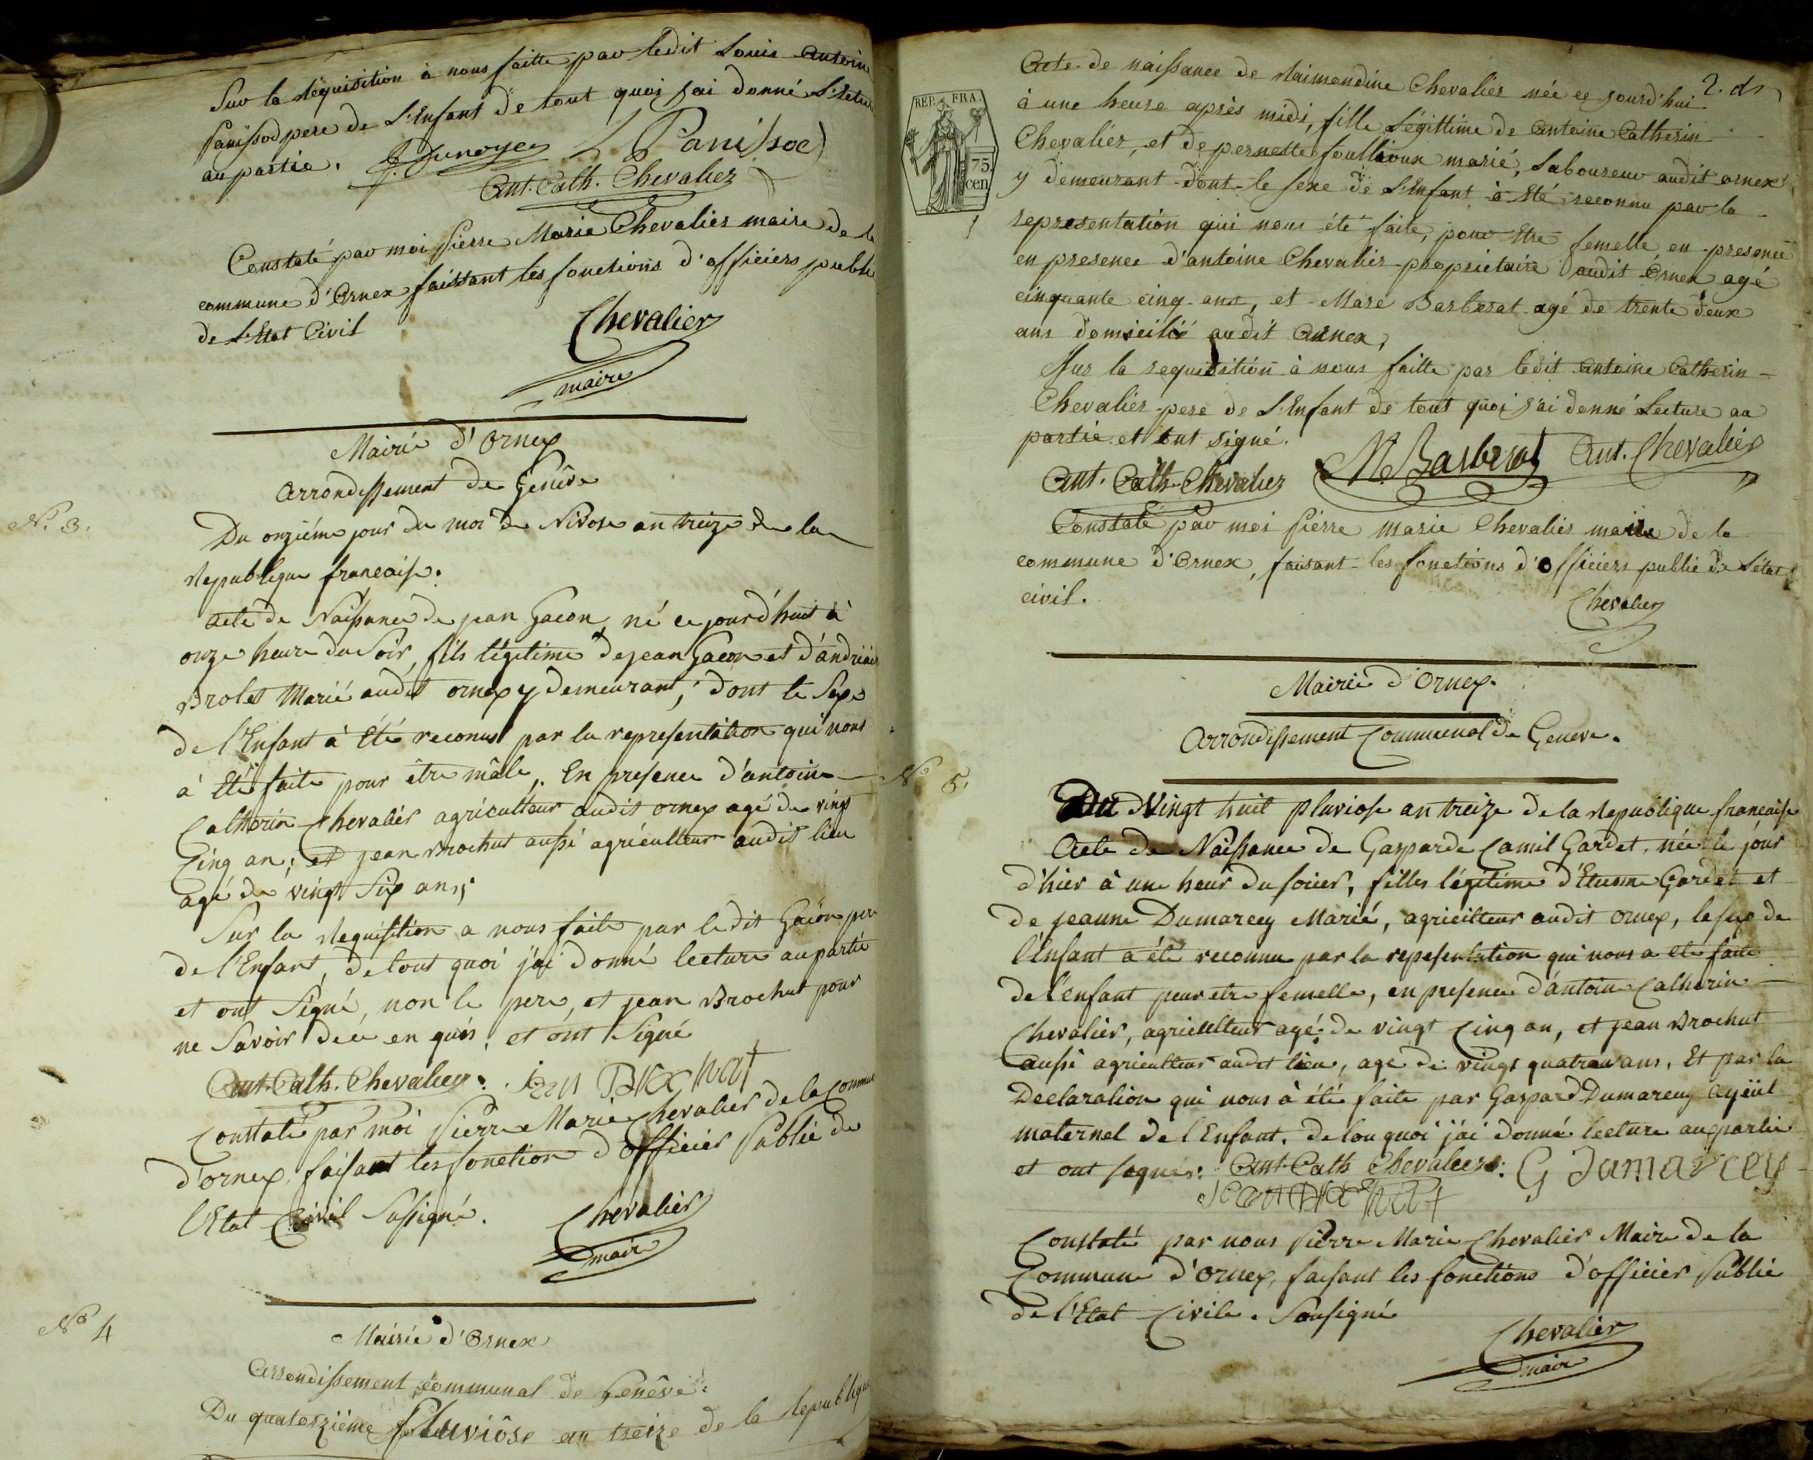 Sur la Requisition à nous faitte par ledit Louis antoin
Panissod pere de L'Enfant de tout quoi jai donné L'Lectu
au partie. J. Dunoyer L Panissod
Ant. Cath. Chevalier
Constaté par moi pierre Marie Chevalier maire de la
commune d'Ornex faissant les fonctions d'officiers publi
de L'Etat Civil
Chevalier
maire
Mairie d'Ornex
arrondissement de Genêve
N.° 3.
Du onziéme jour du moi de Nivose an treize de la
Republique francaise.
acte de Naissance de jean Gacon, né ce jourd'huit à
onze heure du Soir, fils légitime de jean Gacon et d'andriai
Brolet Marié audit ornex y demeurant, dont le Sexe
de l'Enfant à été reconu par la representation qui nous
à Eté faite pour être mâle, En presence d'antoine
Catherin Chevalier agriculteur audit ornex agé de vingt
Cinq an, et jean Brochut aussi agriculteur audit lieu
agé de vingt Six ans,
Sur la Requisition a nous faite par ledit Gacon per
de l'Enfant, de tout quoi j'ai donné lecture au partie
et ont Signé, non le pere, et jean Brochut pour
ne Savoir de ce en quis, et ont Signé
Ant. Cath. Chevalier. Jean Brochut
Constaté par moi pierre Marie Chevalier de la Commu
d'ornex faisant les fonction d'officier Public de
l'Etat Civil Sussigné.
Chevalier
mair
N° 4
Mairie d'Ornex
arrondissement communal de Genêve.
Du quatorziéme pluviôse an treize de la Republique
2. d
REP. FRA.
75
cen
Acte de naissance de Raimondine Chevalier née ce jourd'hui
à une heure après midi, fille Légittime de antoine Catherin
Chevalier, et de pernette foullioux marié, Laboureur audit ornex
y demeurant dont le sexe de L'Enfant à Eté reconnu par la
representation qui nous été faite, pour Etre femelle en presence
en presence d'antoine Chevalier proprietaire audit Ornex agé
cinquante cinq ans, et Marc Barberat agé de trente deux
ans domicilié audit Ornex,
Sur la requisition à nous faitte par ledit antoine Catherin
Chevalier pere de L'Enfant de tout quoi j'ai donné Lecture aa
partie et ont signé.
Ant. Cath Chevalier M Barberat Ant. Chevalier
Constaté par moi pierre marie Chevalier maire de la
commune d'Ornex, faisant les fonctions d'officiers public de L'état
civil.
Chevalier
Mairie d'Ornex.
Arrondissement Communal de Geneve.
N° 5.
Du Vingt huit pluviose an treize de la Republique francaise
Acte de Naissance de Gasparde Camil Gardet, née le jour
d'hier à une heur du soier, filles légitime d'Etienne Gardet et
de jeanne Dumarcey Marié, agriculteur audit ornex, le sexe de
l'Enfant a été reconnu par la representation qui nous a été faite
de l'enfant pour etre femelle, en presence d'antoine Catherin
Chevalier, agriculteur agé de vingt Cinq an, et jean Brochut
aussi agriculteur audit lieu, age de vingt quatre ans, Et par la
Declaration qui nous à été faite par Gaspard Dumarcey Ayëul
maternel de l'Enfant. de tou quoi j'ai donné lecture au partie
et ont signés: Ant. Cath Chevalier: G Dumarcey
Jean Brochut
Constaté par nous pierre Marie Chevalier Maire de la
Commune d'Ornex, faisant les fonctions d'officier Public
de l'Etat Civile. Sousigné
Chevalier
mair